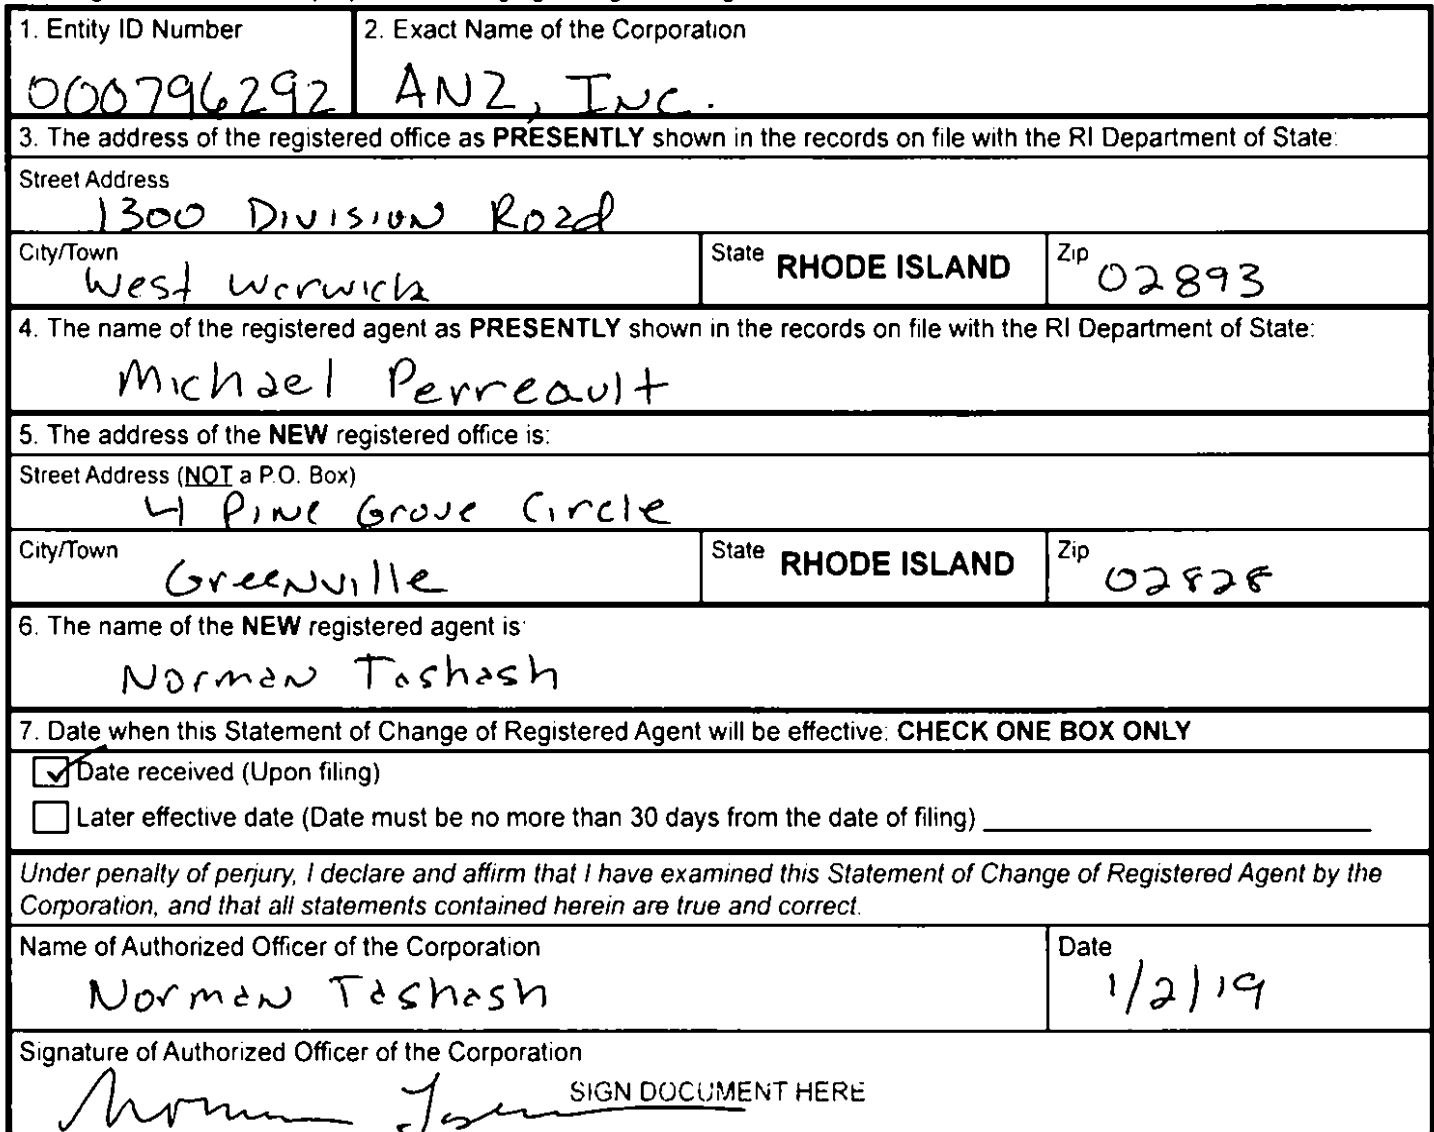 1. Entity ID Number
000796292
2. Exact Name of the Corporation
ANZ, Inc.
3. The address of the registered office as PRESENTLY shown in the records on file with the RI Department of State:
Street Address
1300 Division Road
City/Town
West Warwick
State RHODE ISLAND
Zip 02893
4. The name of the registered agent as PRESENTLY shown in the records on file with the RI Department of State:
Michael Perreault
5. The address of the NEW registered office is:
Street Address (NOT a P.O. Box)
4 Pine Grove Circle
City/Town
Greenville
State RHODE ISLAND
Zip 02828
6. The name of the NEW registered agent is:
Norman Tashash
7. Date when this Statement of Change of Registered Agent will be effective: CHECK ONE BOX ONLY
Date received (Upon filing)
Later effective date (Date must be no more than 30 days from the date of filing)
Under penalty of perjury, I declare and affirm that I have examined this Statement of Change of Registered Agent by the
Corporation, and that all statements contained herein are true and correct.
Name of Authorized Officer of the Corporation
Norman Tashash
Date
1/2/19
Signature of Authorized Officer of the Corporation
SIGN DOCUMENT HERE